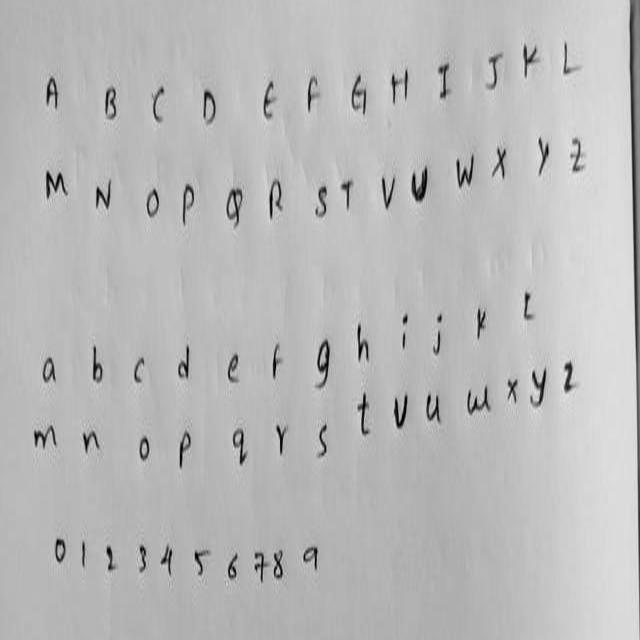 A B C D E F G H I J K L
M N O P Q R S T V U W X Y Z
a b c d e f g h i j k l
m n o p q r s t v u w x y z
0 1 2 3 4 5 6 7 8 9